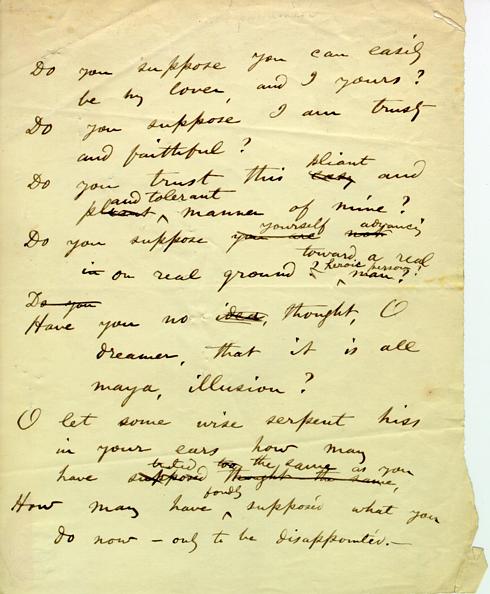 Do you suppose you can easily
be my lover, and I yours?
Do you suppose I am trusty
and faithful?
Do you trust this easy pliant and
pleasant and tolerant manner of mine?
Do you suppose you are now yourself advancing
in on real ground toward a real heroic person man?
Do you
Have you no idea, thought, O
dreamer, that it is all
maya, illusion?
O let some wise serpent hiss
in your ears how many
have supposed thought the same, the same as you
How many have fondly supposed what you
do now — only to be disappointed.—